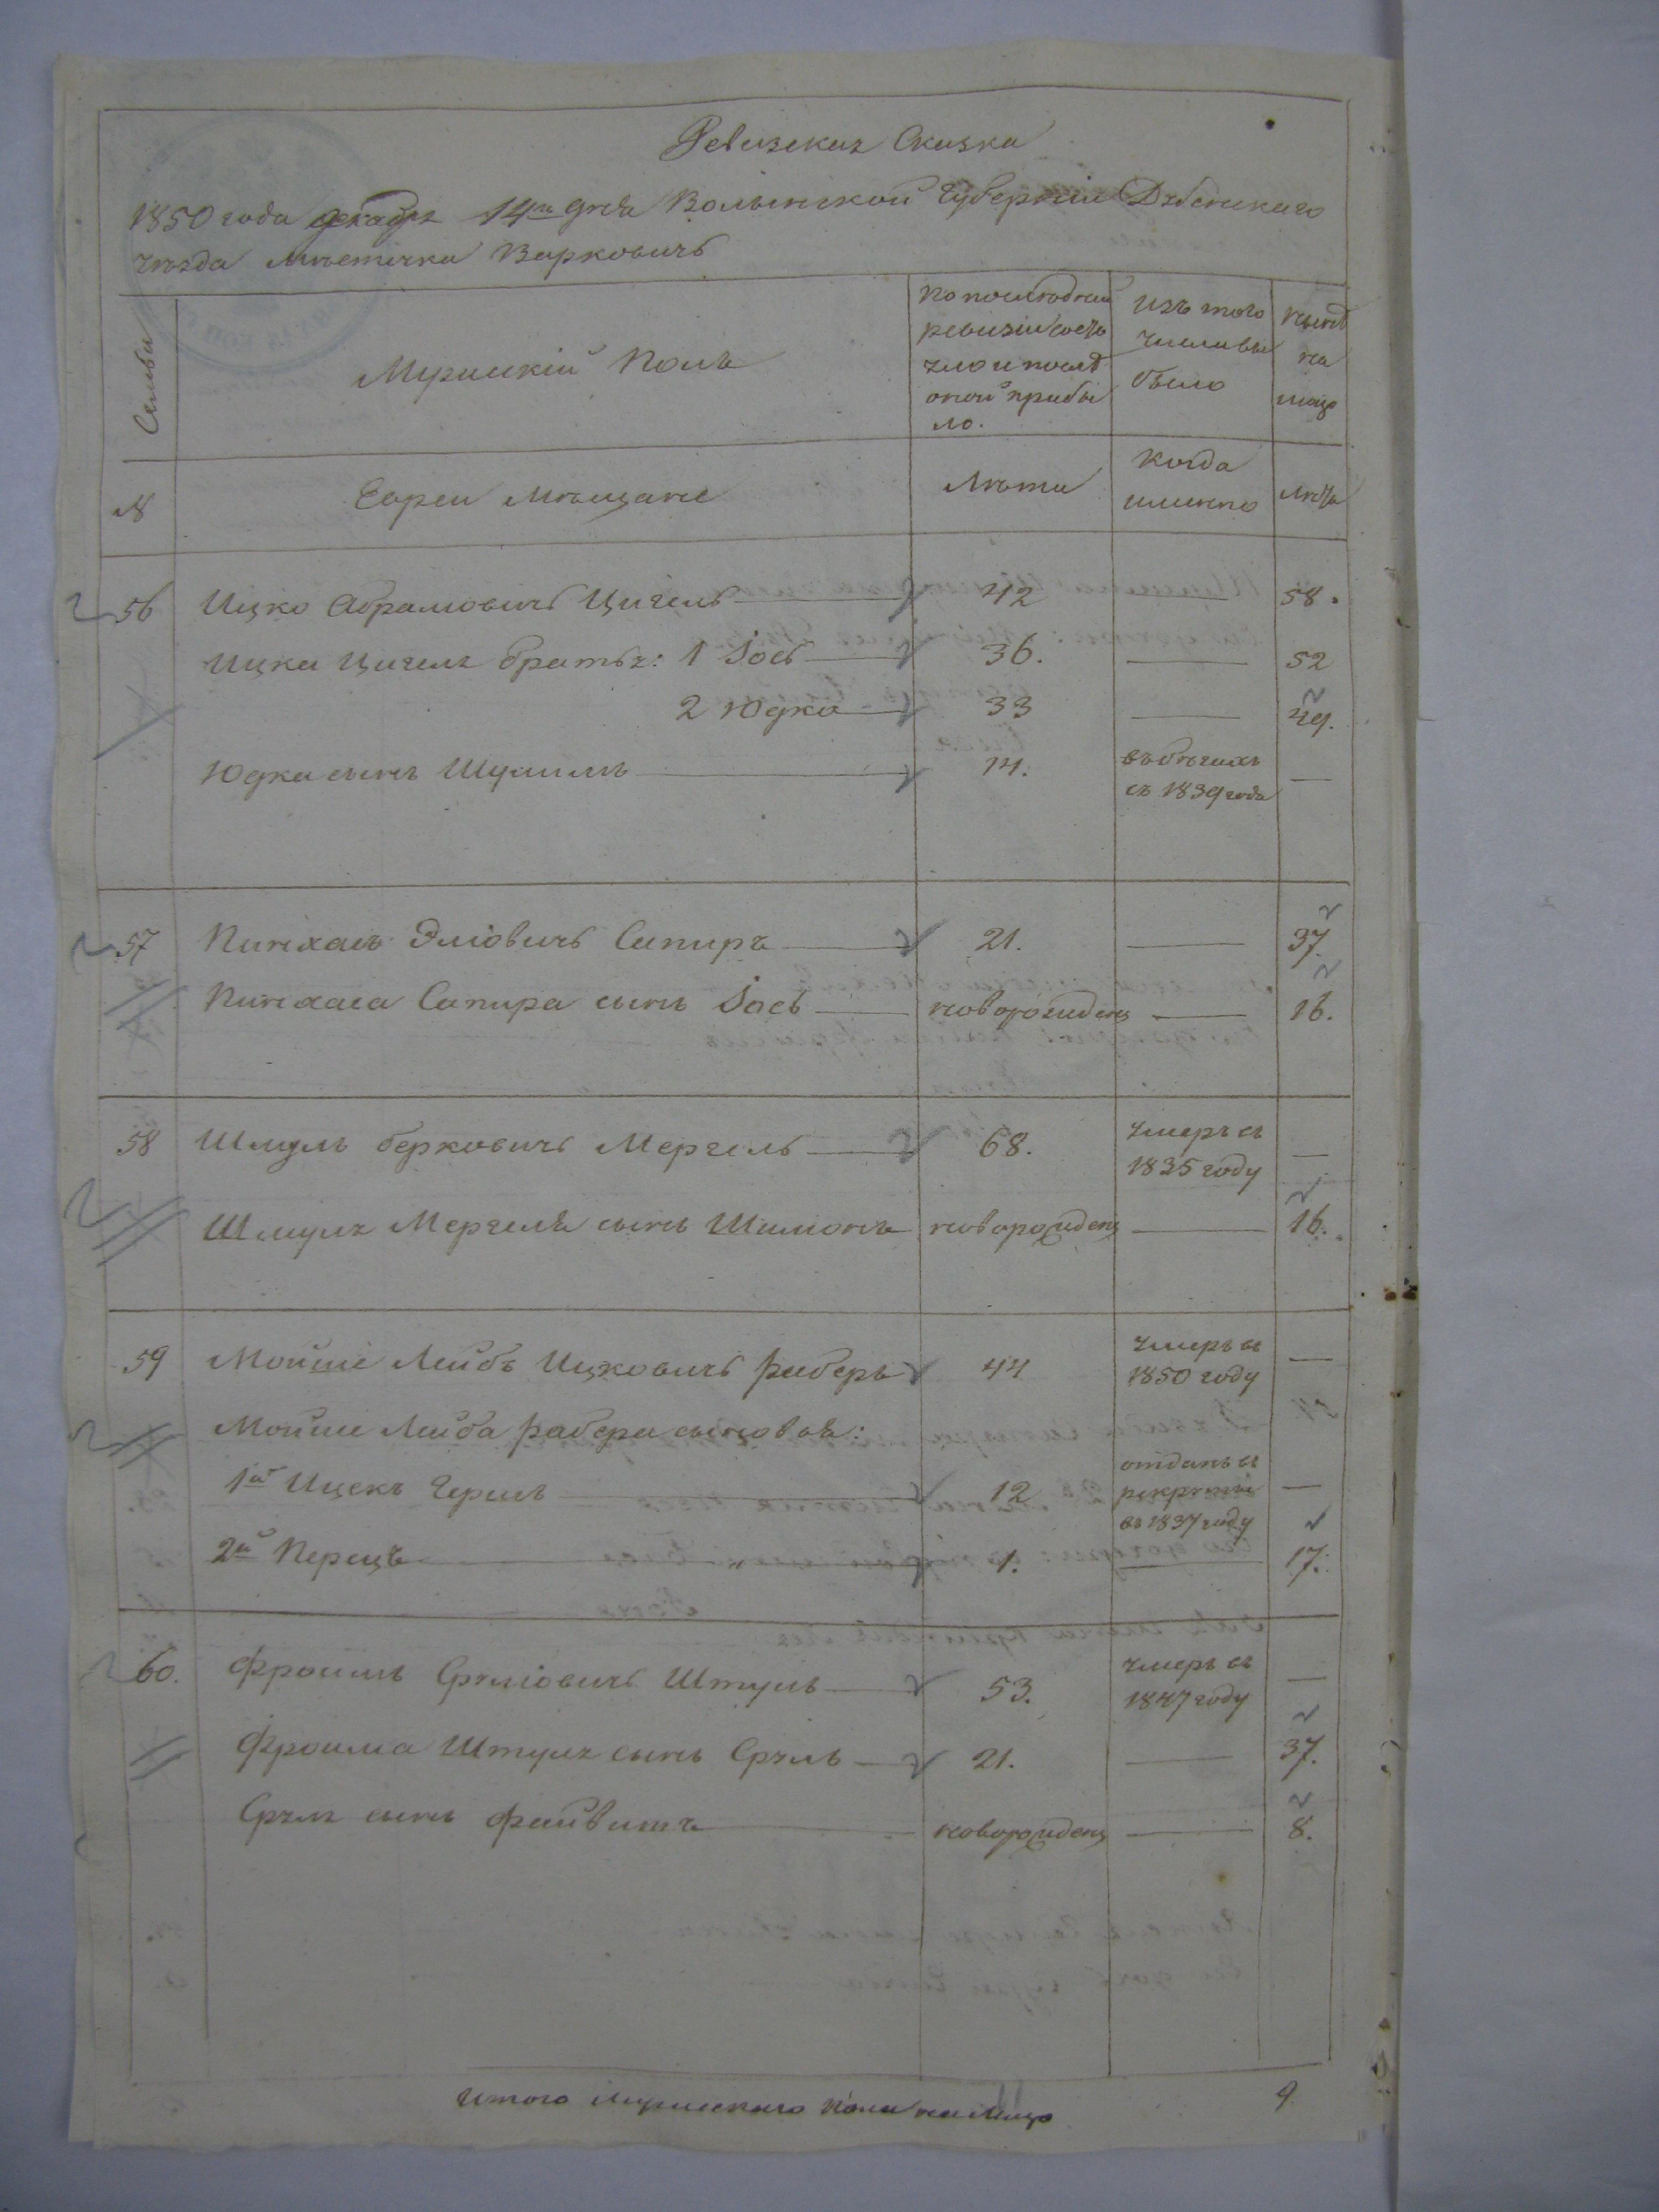 Ревизская Сказка
1850 года декабря 14го дня Волынской Губерніи Дубенскаго
уезда местечка Варковичь
Семьи
Мужескій Полъ
По последней ревизіи состояло и после оной прибыло.
Изъ того числа выбыло
Ныне на лицо
№
Евреи Мещане
Лета
Когда именно
Лета
56 Ицко Абрамовичь Цигель 42 — 58.
Ицка Цигеля братья: 1 Іось 36. — 52
2 Юдко 33 — 49.
Юдка сынъ Шулимъ 14. въ бегахъ съ 1839 года —
57 Пинхасъ Эліовичь Сапиръ 21. — 37.
Пинхаса Сапира сынъ Іось новорожденъ — 16.
58 Шмуль Берковичь Мергель 68. умеръ въ 1835 году —
Шмуля Мергеля сынъ Шимонъ новорожденъ — 16.
59 Мойше Лейбъ Ицковичь Раберъ 44 умеръ въ 1850 году —
Мойше Лейба Рабера сыновья:
1й Ицекъ Гершъ 12 отданъ въ рекруты въ 1837 году —
2й Перецъ 1. — 17.
60. Фроимъ Сруліовичь Штуль 53. умеръ въ 1847 году —
Фроима Штуля сынъ Сруль 21. — 37.
Сруля сынъ Файвишъ новорожденъ — 8.
Итого Мужескаго Пола на Лицо 9